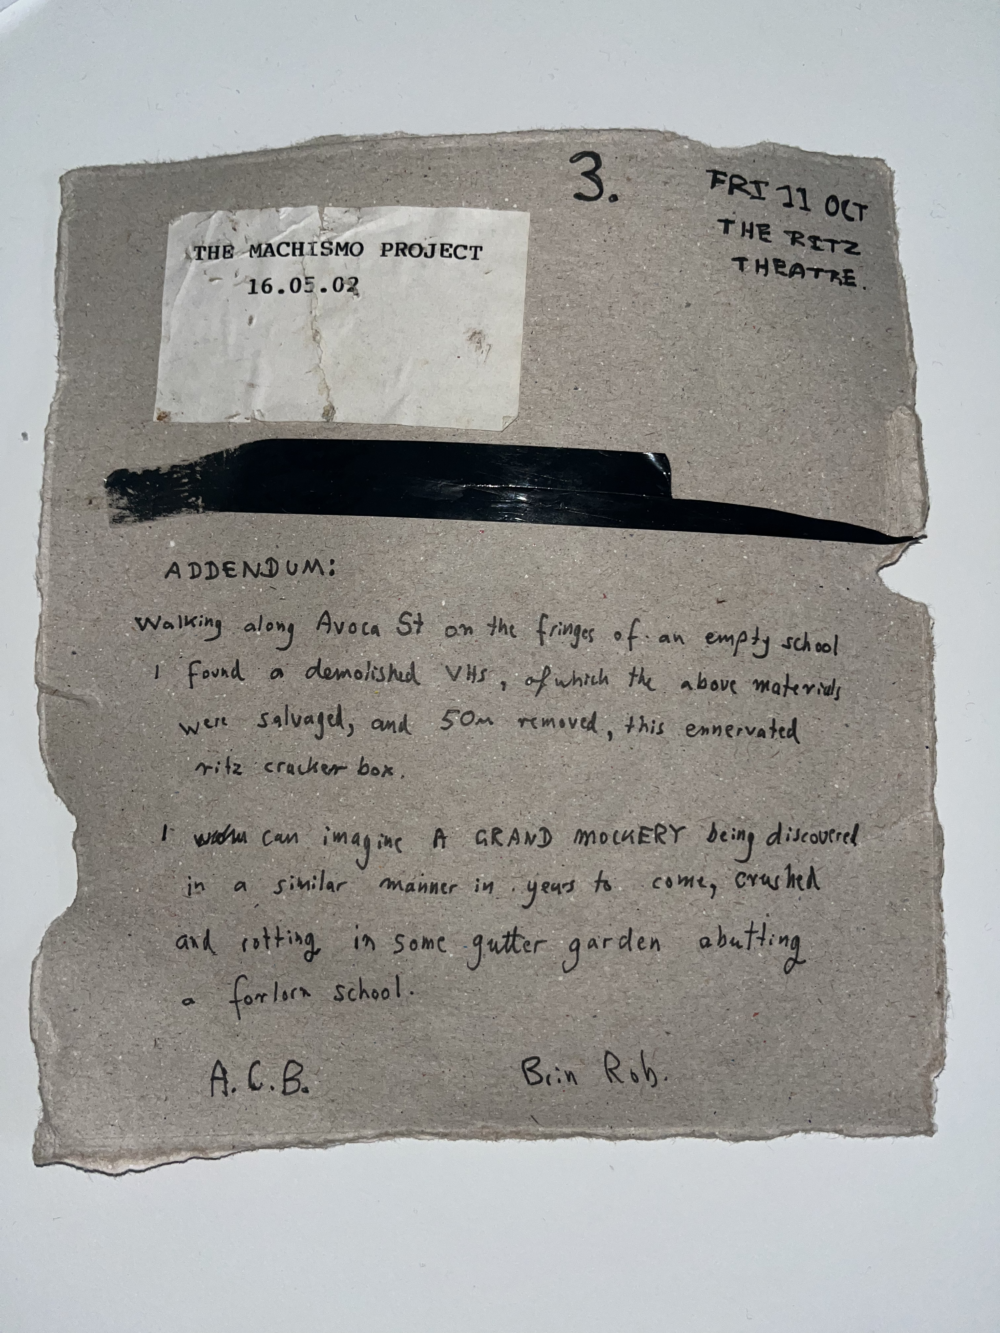 3.
FRI 11 OCT
THE RITZ
THEATRE.
THE MACHISMO PROJECT
16.05.02
ADDENDUM:
Walking along Avoca St on the fringes of an empty school
I found a demolished VHS, of which the above materials
were salvaged, and 50m removed, this ennervated
ritz cracker box.
I can imagine A GRAND MOCKERY being discovered
in a similar manner in years to come, crushed
and rotting in some gutter garden abutting
a forlorn school.
A.C.B.
Brin Rob.